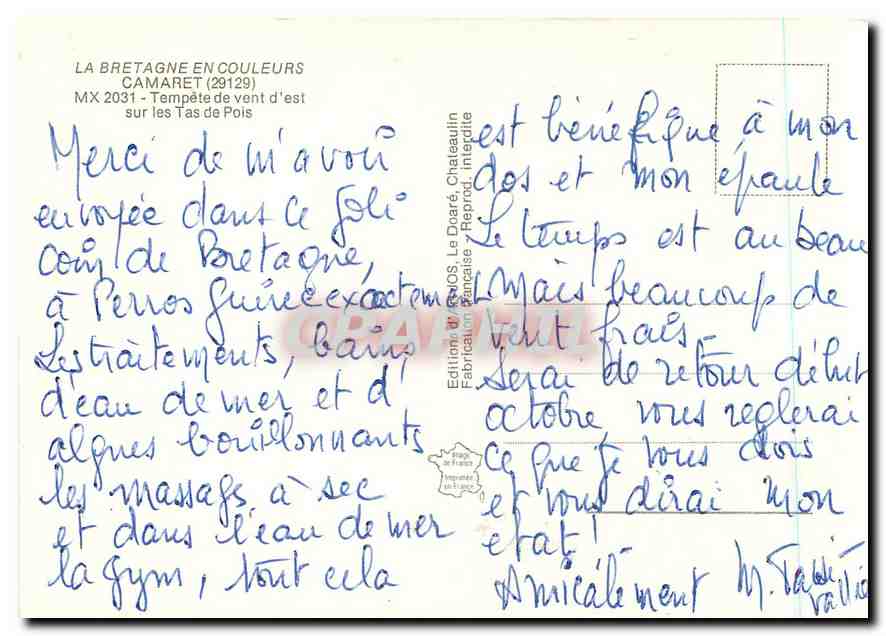 LA BRETAGNE EN COULEURS
CAMARET (29129)
MX 2031 - Tempête de vent d'est
sur les Tas de Pois
Merci de m'avoir
envoyée dans ce joli
coin de Bretagne,
à Perros Guirec exactement
Les traitements, bains,
d'eau de mer et d'
algues bouillonnants
les massages à sec
et dans l'eau de mer
la gym, tout cela
Editions d'Art JOS, Le Doaré, Chateaulin
Fabrication française - Reprod. interdite
Image
de France
Imprimée
en France
est bénéfique à mon
dos et mon épaule
Le temps est au beau
Mais beaucoup de
vent frais
Serai de retour début
octobre, vous reglerai
ce que je vous dois
et vous dirai mon
etat!
Amicalement M.